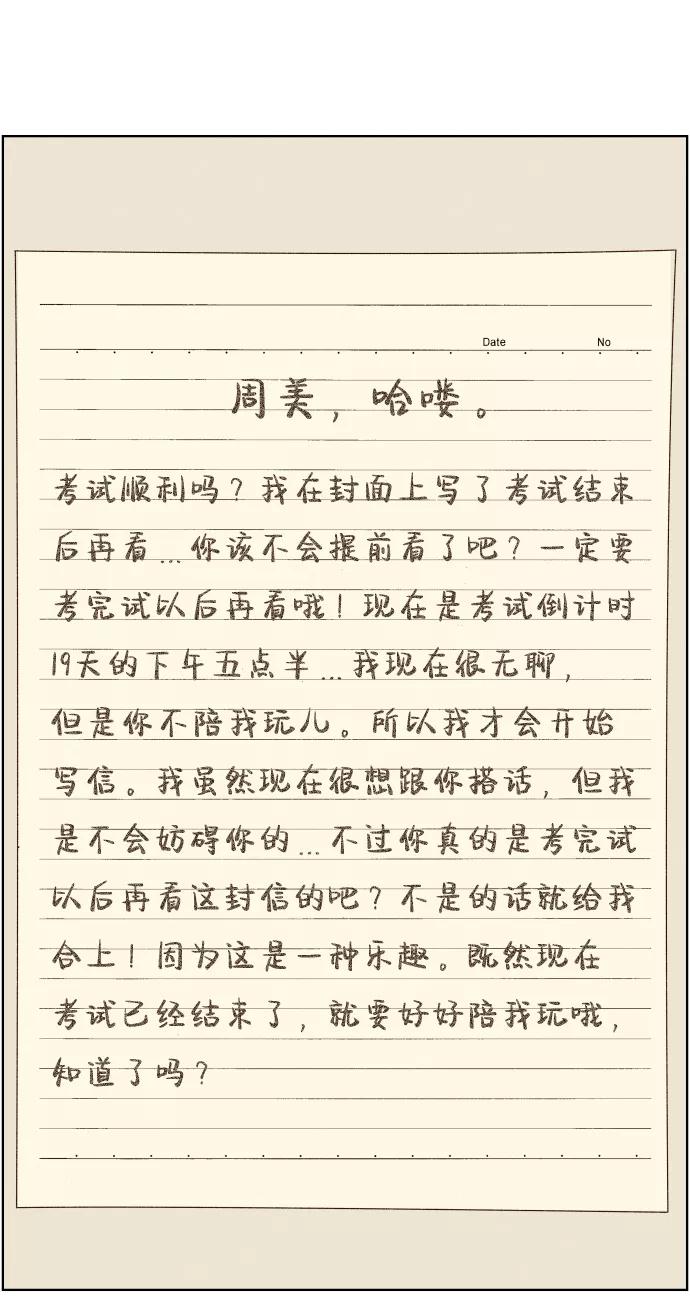 Date No
周美，哈喽。
考试顺利吗？我在封面上写了考试结束
后再看…你该不会提前看了吧？一定要
考完试以后再看哦！现在是考试倒计时
19天的下午五点半…我现在很无聊，
但是你不陪我玩儿。所以我才会开始
写信。我虽然现在很想跟你搭话，但我
是不会妨碍你的…不过你真的是考完试
以后再看这封信的吧？不是的话就给我
合上！因为这是一种乐趣。既然现在
考试已经结束了，就要好好陪我玩哦，
知道了吗？